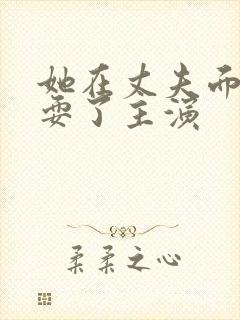 她在丈夫而
耍了主演
柔柔之心